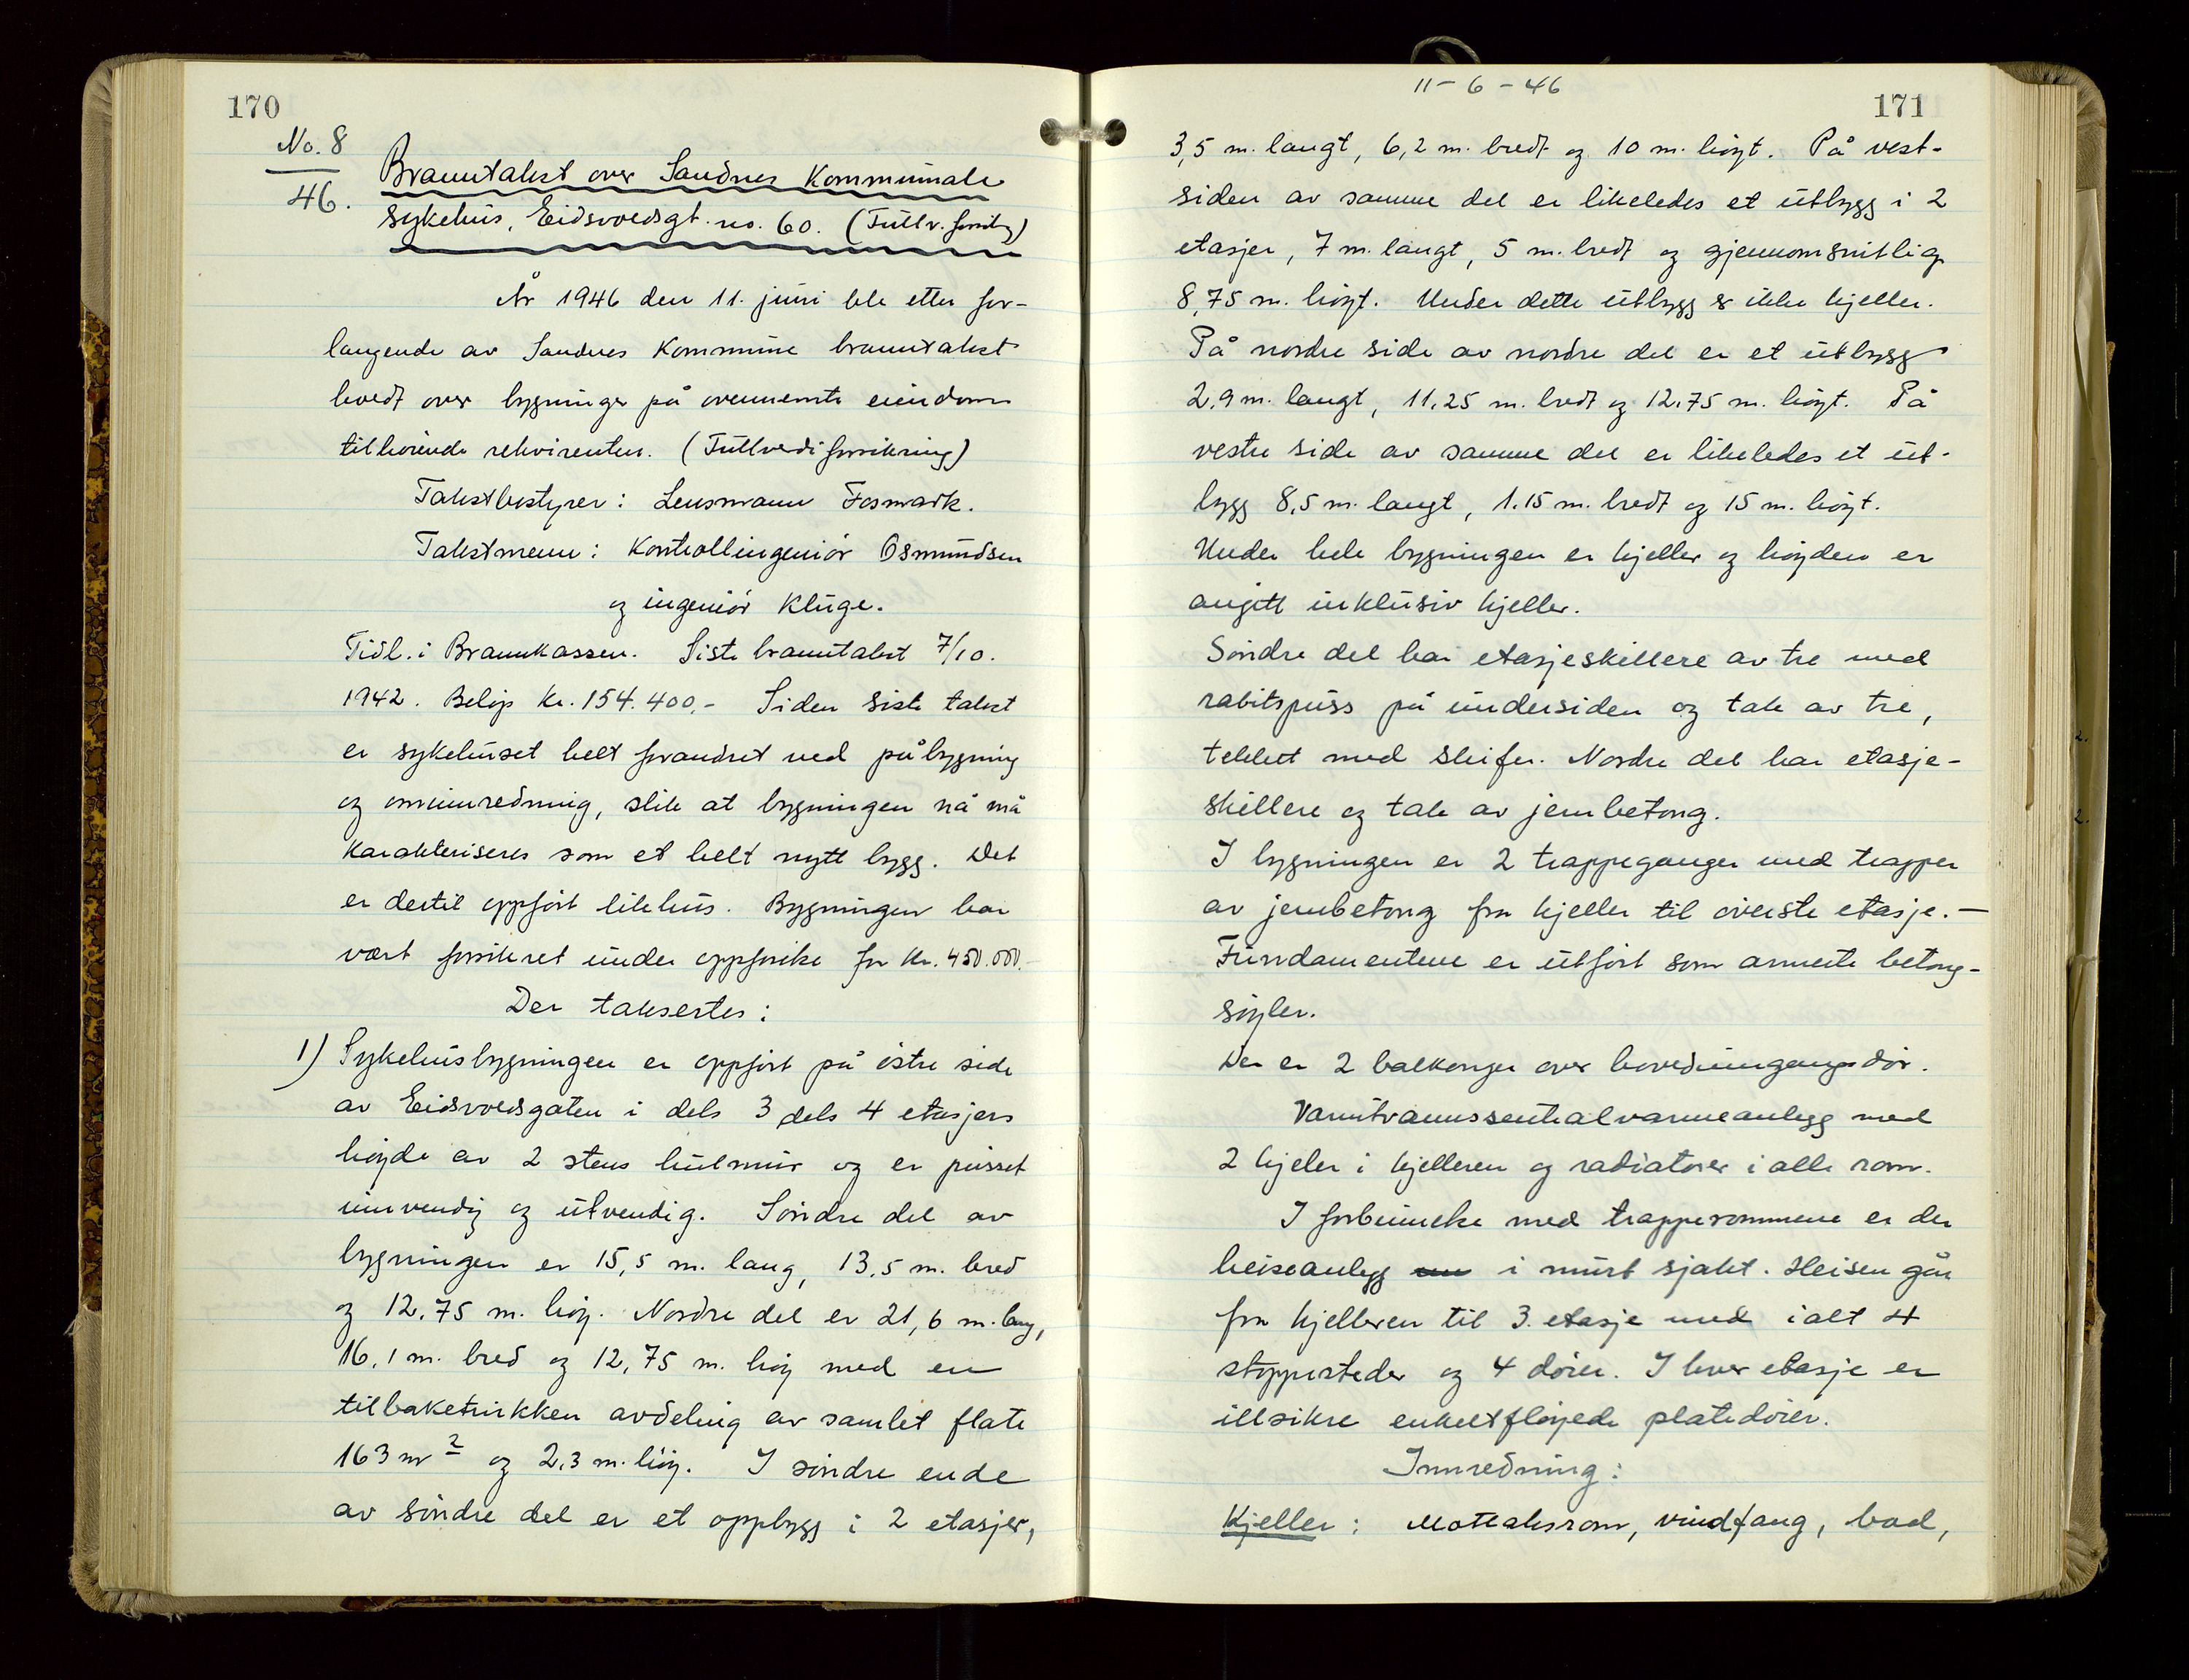 170
No. 8
46.
Branntakst over Sandnes Kommunale
sykehus, Eidsvoldsgt. no. 60. (Fullv. forsikring)
År 1946 den 11. juni ble etter for-
langende av Sandnes Kommune branntakst
holdt over bygninger på ovennemte eiendom
tilhørende rekvirenten. (Fullverdiforsikring)
Takstbestyrer: Lensmann Fosmark.
Takstmenn: Kontrollingeniør Osmundsen
og ingeniør Kluge.
Tidl. i Brannkassen. Siste branntakst 7/10.
1942. Beløp Kr. 154.400,- Siden siste takst
er sykehuset helt forandret ved påbygning
og ominnredning, slik at bygningen nå må
karakteriseres som et helt nytt bygg. Det
er dertil oppført likhus. Bygningen har
vært forsikret under oppførelse for Kr. 450.000.-
Der takseres:
1) Sykehusbygningen er oppført på østre side
av Eidsvoldsgaten i dels 3 dels 4 etasjers
høyde av 2 stens hulmur og er pusset
innvendig og utvendig. Søndre del av
bygningen er 15,5 m. lang, 13,5 m. bred
og 12,75 m. høy. Nordre del er 21,6 m. lang,
16,1 m. bred og 12,75 m. høy med en
tilbaketrukken avdeling av samlet flate
163 m2 og 2,3 m. høy. I søndre ende
av søndre del er et oppbygg i 2 etasjer,
11-6-46
171
3,5 m. langt, 6,2 m. bredt og 10 m. høyt. På vest-
siden av samme del er likeledes et utbygg i 2
etasjer, 7 m. langt, 5 m. bredt og gjennomsnitlig
8,75 m. høyt. Under dette utbygg er ikke kjeller.
På nordre side av nordre del er et utbygg
2,9 m. langt, 11,25 m. bredt og 12,75 m. høyt. På
vestre side av samme del er likeledes et ut-
bygg 8,5 m. langt, 1,15 m. bredt og 15 m. høyt.
Under hele bygningen er kjeller og høyden er
angitt inklusiv kjeller.
Søndre del har etasjeskillere av tre med
rabitspuss på undersiden og tak av tre,
tekket med skifer. Nordre del har etasje-
skillere og tak av jernbetong.
I bygningen er 2 trappeganger med trapper
av jernbetong fra kjeller til øverste etasje.-
Fundamentene er utført som armerte betong-
søyler.
Der er 2 balkonger over hovedinngangsdør.
Varmtvannssentralvarmeanlegg med
2 kjeler i kjelleren og radiatorer i alle rom.
I forbindelse med trapperommene er der
heiseanlegg i murt sjakt. Heisen går
fra kjelleren til 3. etasje med i alt 4
stoppesteder og 4 dører. I hver etasje er
illsikre enkeltfløyede platedører.
Innredning:
Kjeller: Mottaksrom, vindfang, bad,